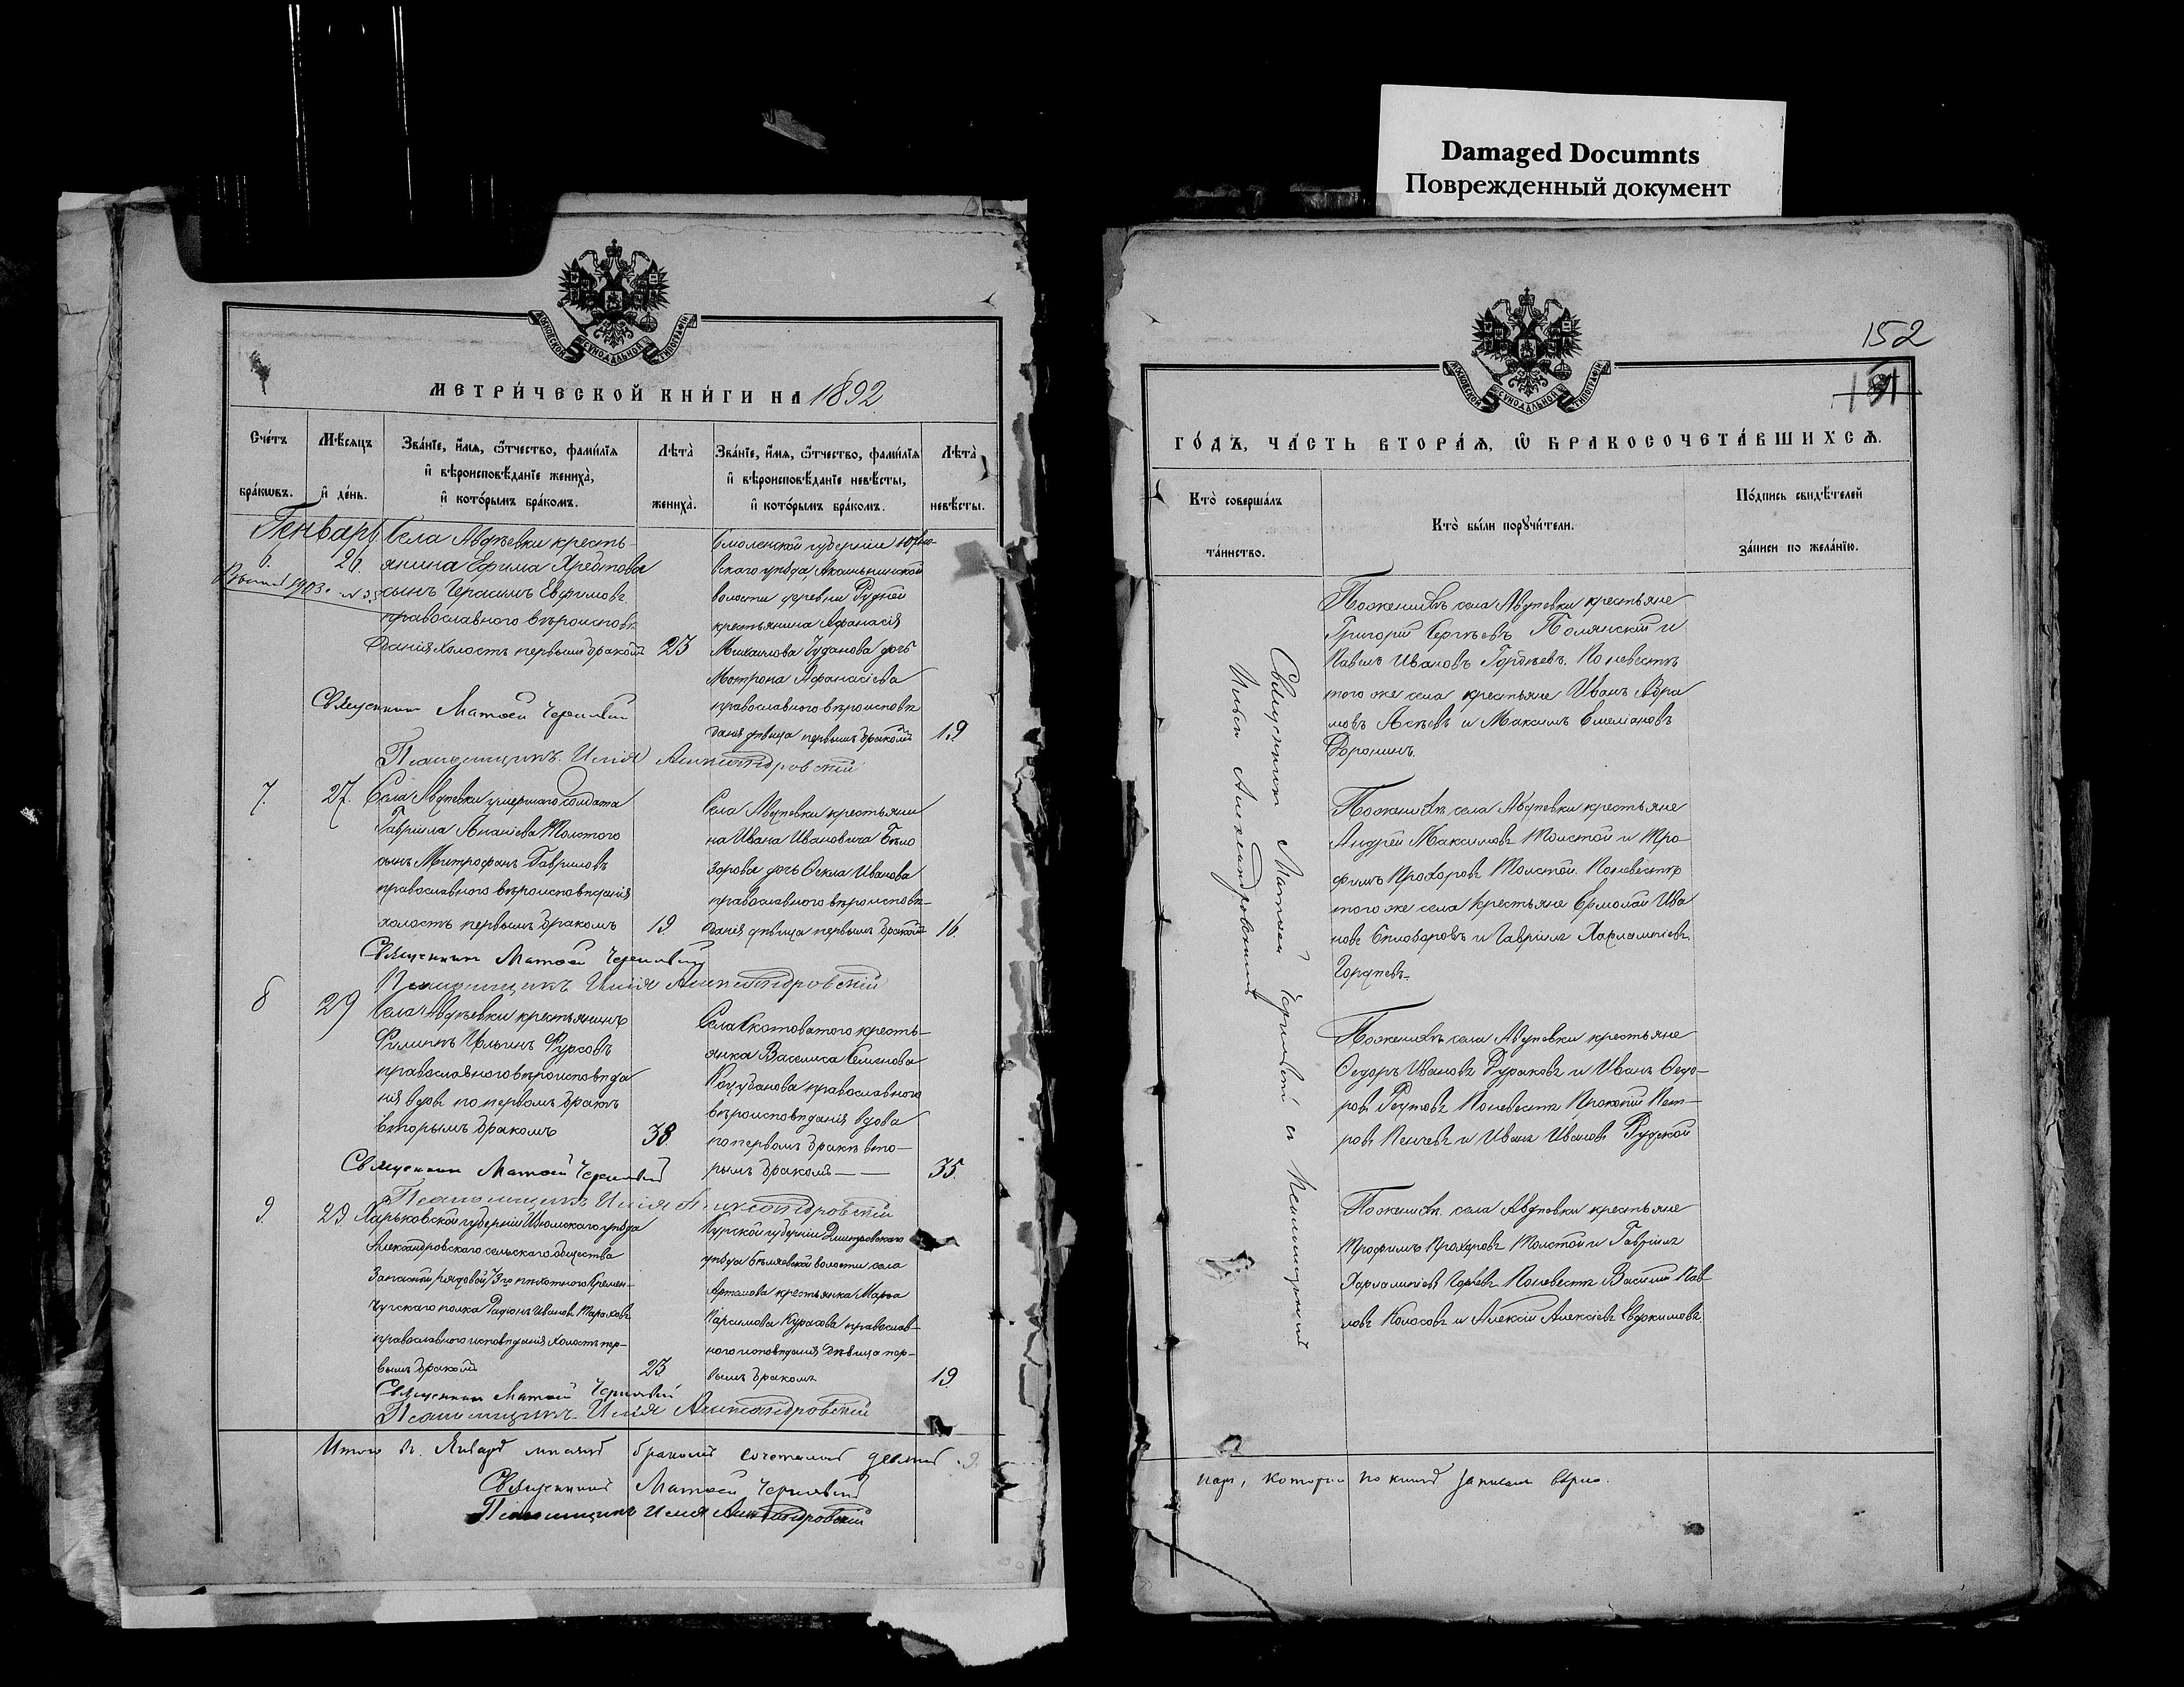 Damaged Documnts
Поврежденный документ
МОСКОВСКОЙ СѴНОДАЛЬНОЙ ТИПОГРАФІИ
МЕТРИ́ЧЕСКОЙ КНИ́ГИ НА 1892
Сче́тъ бра́кѡвъ.
Мѣ́сяцъ и҆ де́нь.
Зва́нїе, и҆́мѧ, ѻ҆́тчество, фами́лїѧ
и҆ вѣроисповѣ́данїе жениха̀,
и҆ кото́рымъ бра́комъ.
Лѣта̀ жениха̀.
Зва́нїе, и҆́мѧ, ѻ҆́тчество, фами́лїѧ
и҆ вѣроисповѣ́данїе невѣ́сты,
и҆ кото́рымъ бра́комъ.
Лѣта̀ невѣ́сты.
Генварь
6.
26.
1903.
Села Авдѣевки кресть-
янина Ефима
сынъ Герасимъ Евфимовъ
православнаго вѣроисповѣ
данія холостъ первымъ бракомъ
23
Смоленской губерніи
вскаго уѣзда,
волости деревни Рудней
крестьянина Афанасія
Михаилова дочь
Мотрона Афанасіева
православнаго вѣроисповѣ
данія дѣвица первымъ бракомъ
19
Священникъ Матѳей Чернявскій
Псаломщикъ Илія Александровскій
7.
27.
Села Авдѣевки умершаго солдата
Гавріила Ананіева Толстого
сынъ Митрофанъ Гавриловъ
православнаго вѣроисповѣданія
холостъ первымъ бракомъ
19.
Села Авдѣевки крестьяни
на Ивана Ивановича Бѣло
зорова дочь Ѳекла Иванова
православнаго вѣроисповѣ-
данія дѣвица первымъ бракомъ
16.
Священникъ Матѳей Чернявскій
Псаломщикъ Илія Александровскій
8
29
Села Авдѣевки крестьянинъ
Филипъ Ильинъ Фурсовъ
православнаго вѣроисповѣда
нія вдовъ по первомъ бракѣ
вторымъ бракомъ
38
Села Скотоватого кресть-
янка Василиса Семенова
православнаго
вѣроисповѣданія вдова
по первомъ бракѣ вто-
рымъ бракомъ
35.
Священникъ Матѳей Чернявскій
Псаломщикъ Илія Александровскій
9.
29.
Харьковской губерніи Изюмскаго уѣзда
Александровскаго сельскаго общества
Запасный рядовой 73го пѣхотнаго Кремен-
чугскаго полка Родіонъ Ивановъ
православнаго исповѣданія холостъ пер-
вымъ бракомъ
23
Курской губерніи Дмитровскаго
уѣзда волости села
крестьянка Марѳа
православ-
наго исповѣданія дѣвица пер-
вымъ бракомъ
19
Священникъ Матѳей Чернявскій
Псаломщикъ Илія Александровскій
Итого въ Январѣ мѣсяцѣ бракомъ сочетаны девять 9.
Священникъ Матѳей Чернявскій
Псаломщикъ Илія Александровскій
152
151
МОСКОВСКОЙ СѴНОДАЛЬНОЙ ТИПОГРАФІИ
ГО́ДЪ, ЧА́СТЬ ВТОРА́Ѧ, Ѡ҆ БРАКОСОЧЕТА́ВШИХСѦ.
Кто̀ соверша́лъ
та́инство.
Кто̀ бы́ли порꙋчи́тели.
По́дпись свидѣ́телей
за́писи по жела́нїю.
Священникъ Матѳей Чернявскій съ Псаломщикомъ
Иліей Александровскимъ
По женихѣ села Авдѣевки крестьяне
Григорій Сергѣевъ Полянскій и
Павелъ Ивановъ Гордѣевъ. По невѣстѣ
того же села крестьяне Иванъ Абра
мовъ Асѣевъ и Максимъ Емеліановъ
По женихѣ села Авдѣевки крестьяне
Андрей Максимовъ Толстой и Тро-
фимъ Прохоровъ Толстой. По невѣстѣ
того же села крестьяне Ермолай Ива
новъ Бѣлозоровъ и Гавріилъ Харлампіевъ
Гордѣевъ
По женихѣ села Авдѣевки крестьяне
Ѳедоръ Ивановъ Дураковъ и Иванъ Ѳедо-
ровъ Реутовъ По невѣстѣ Прокопій Пет-
ровъ и Иванъ Ивановъ Рудской
По женихѣ села Авдѣевки крестьяне
Трофимъ Прохоровъ Толстой и Гавріилъ
Харлампіевъ По невѣстѣ Василій Пав
ловъ Колосовъ и Алексій Алексіевъ Евдокимовъ
паръ, которые по книгѣ записаны вѣрно.